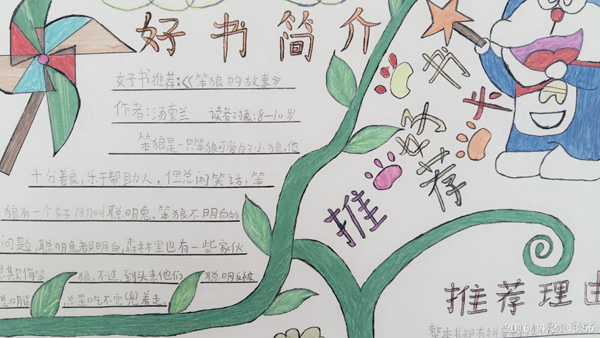 好书简介
好书推荐:《笨狼的故事》
作者:汤素兰 读者对象:8—10岁
笨狼是一只笨狼可爱的小狼,他
十分善良,乐于帮助人,但总闹笑话,笨
狼有一个好朋友叫聪明兔,笨狼不明白的
问题,聪明兔都明白,森林里也有一些家伙
狼,不过,到头来他们
总是吃不完兜着走
好书推荐卡
推荐理由